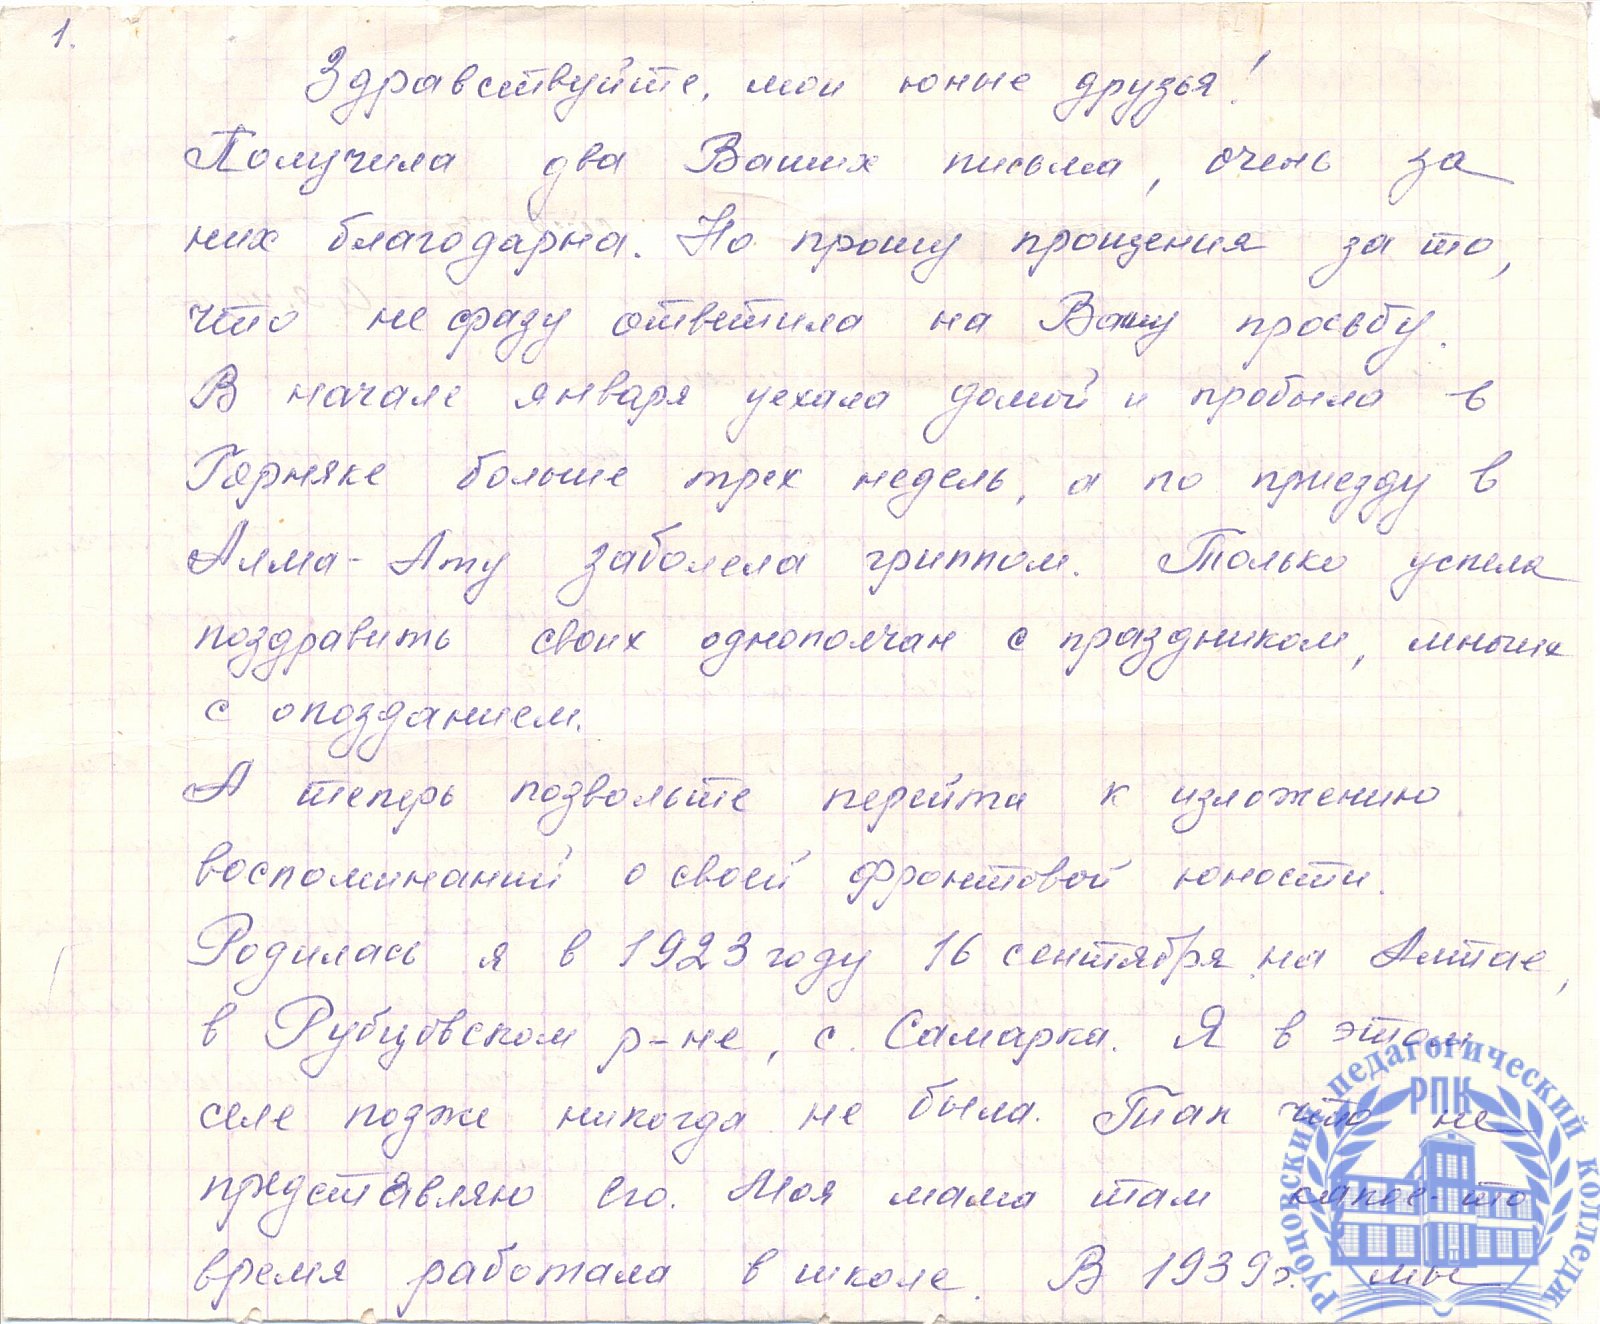 1.
Здравствуйте, мои юные друзья!
Получила два Ваших письма, очень за
них благодарна. Но прошу прощения за то,
что не сразу ответила на Вашу просьбу.
В начале января уехала домой и пробыла в
Горняке больше трех недель, а по приезду в
Алма-Ату заболела гриппом. Только успела
поздравить своих однополчан с праздником, многих
с опозданием.
А теперь позвольте перейти к изложению
воспоминаний о своей фронтовой юности.
Родилась я в 1923 году 16 сентября на Алтае,
в Рубцовском р-не, с. Самарка. Я в этом
селе позже никогда не была. Так что не
представляю его. Моя мама там какое-то
время работала в школе. В 1939 г. мы
Рубцовский педагогический колледж
РПК